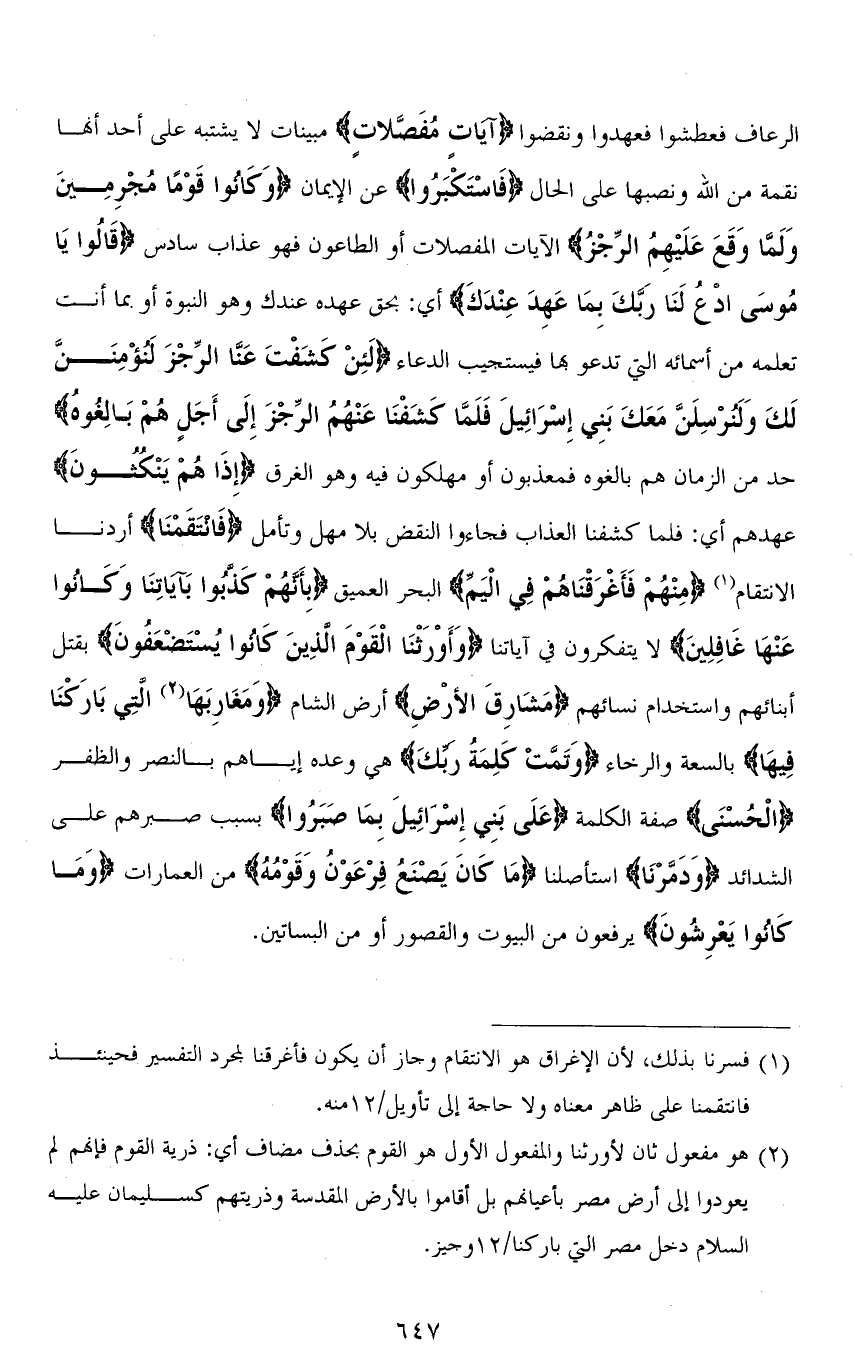 الرعاف فعطشوا فعهدوا ونقضوا ﴿آيَاتٍ مُفَصَّلاتٍ﴾ مبينات لا يشتبه على أحد أنها
نقمة من الله ونصبها على الحال ﴿فَاسْتَكْبَرُوا﴾ عن الإيمان ﴿وَكَانُوا قَوْمًا مُجْرِمِينَ
وَلَمَّا وَقَعَ عَلَيْهِمُ الرِّجْزُ﴾ الآيات المفصلات أو الطاعون فهو عذاب سادس ﴿قَالُوا يَا
مُوسَى ادْعُ لَنَا رَبَّكَ بِمَا عَهِدَ عِنْدَكَ﴾ أي: بحق عهده عندك وهو النبوة أو بما أنت
تعلمه من أسمائه التي تدعو بها فيستجيب الدعاء ﴿لَئِنْ كَشَفْتَ عَنَّا الرِّجْزَ لَنُؤْمِنَنَّ
لَكَ وَلَنُرْسِلَنَّ مَعَكَ بَنِي إِسْرَائِيلَ فَلَمَّا كَشَفْنَا عَنْهُمُ الرِّجْزَ إِلَى أَجَلٍ هُمْ بَالِغُوهُ﴾
حد من الزمان هم بالغوه فمعذبون أو مهلكون فيه وهو الغرق ﴿إِذَا هُمْ يَنْكُثُونَ﴾
عهدهم أي: فلما كشفنا العذاب فجاءوا النقض بلا مهل وتأمل ﴿فَانْتَقَمْنَا﴾ أردنا
الانتقام(١) ﴿مِنْهُمْ فَأَغْرَقْنَاهُمْ فِي الْيَمِّ﴾ البحر العميق ﴿بِأَنَّهُمْ كَذَّبُوا بَآيَاتِنَا وَكَانُوا
عَنْهَا غَافِلِينَ﴾ لا يتفكرون في آياتنا ﴿وَأَوْرَثْنَا الْقَوْمَ الَّذِينَ كَانُوا يُسْتَضْعَفُونَ﴾ بقتل
أبنائهم واستخدام نسائهم ﴿مَشَارِقَ الأرْضِ﴾ أرض الشام ﴿وَمَغَارِبَهَا(٢) الَّتِي بَارَكْنَا
فِيهَا﴾ بالسعة والرخاء ﴿وَتَمَّتْ كَلِمَةُ رَبِّكَ﴾ هي وعده إياهم بالنصر والظفر
﴿الْحُسْنَى﴾ صفة الكلمة ﴿عَلَى بَنِي إِسْرَائِيلَ بِمَا صَبَرُوا﴾ بسبب صبرهم على
الشدائد ﴿وَدَمَّرْنَا﴾ استأصلنا ﴿مَا كَانَ يَصْنَعُ فِرْعَوْنُ وَقَوْمُهُ﴾ من العمارات ﴿وَمَا
كَانُوا يَعْرِشُونَ﴾ يرفعون من البيوت والقصور أو من البساتين.
(١) فسرنا بذلك، لأن الإغراق هو الانتقام وجاز أن يكون فأغرقنا لمجرد التفسير فحينئذ
فانتقمنا على ظاهر معناه ولا حاجة إلى تأويل/١٢منه.
(٢) هو مفعول ثان لأورثنا والمفعول الأول هو القوم بحذف مضاف أي: ذرية القوم فإنهم لم
يعودوا إلى أرض مصر بأعيانهم بل أقاموا بالأرض المقدسة وذريتهم كسليمان عليه
السلام دخل مصر التي باركنا/١٢وجيز.
٦٤٧